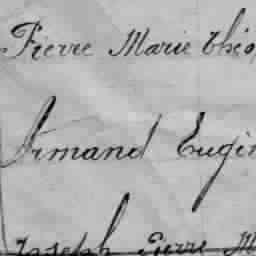 Pierre Marie Théo
Armand Eugèn
Joseph Pierre M